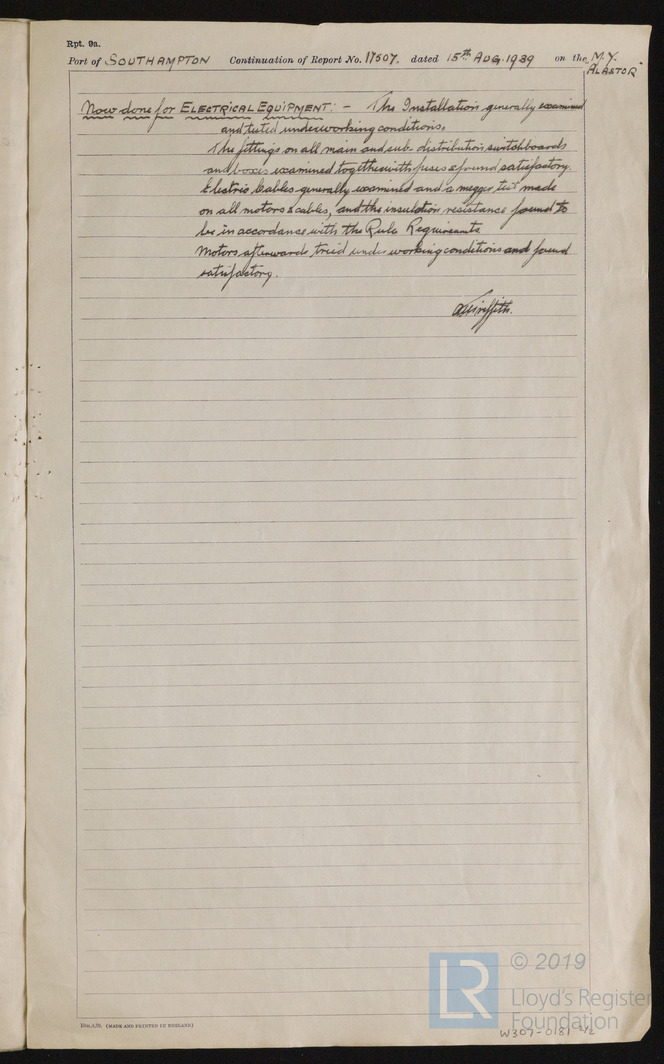 Rpt. 9a.
Port of SOUTHAMPTON Continuation of Report No. 17507. dated 15th AUG. 1939 on the M.Y.
"ALASTOR"
Now done for ELECTRICAL EQUIPMENT: - The Installation generally examined
and tested under working conditions.
The fittings on all main and sub-distribution switchboards
and boxes examined together with fuses & found satisfactory.
Electric Cables generally examined and a megger test made
on all motors & cables, and the insulation resistance found to
be in accordance with the Rule Requirements
Motors afterwards tried under working conditions and found
satisfactory.
Griffith.
(MADE AND PRINTED IN ENGLAND)
LR © 2019
Lloyd's Register
Foundation
W307-0181 2/2